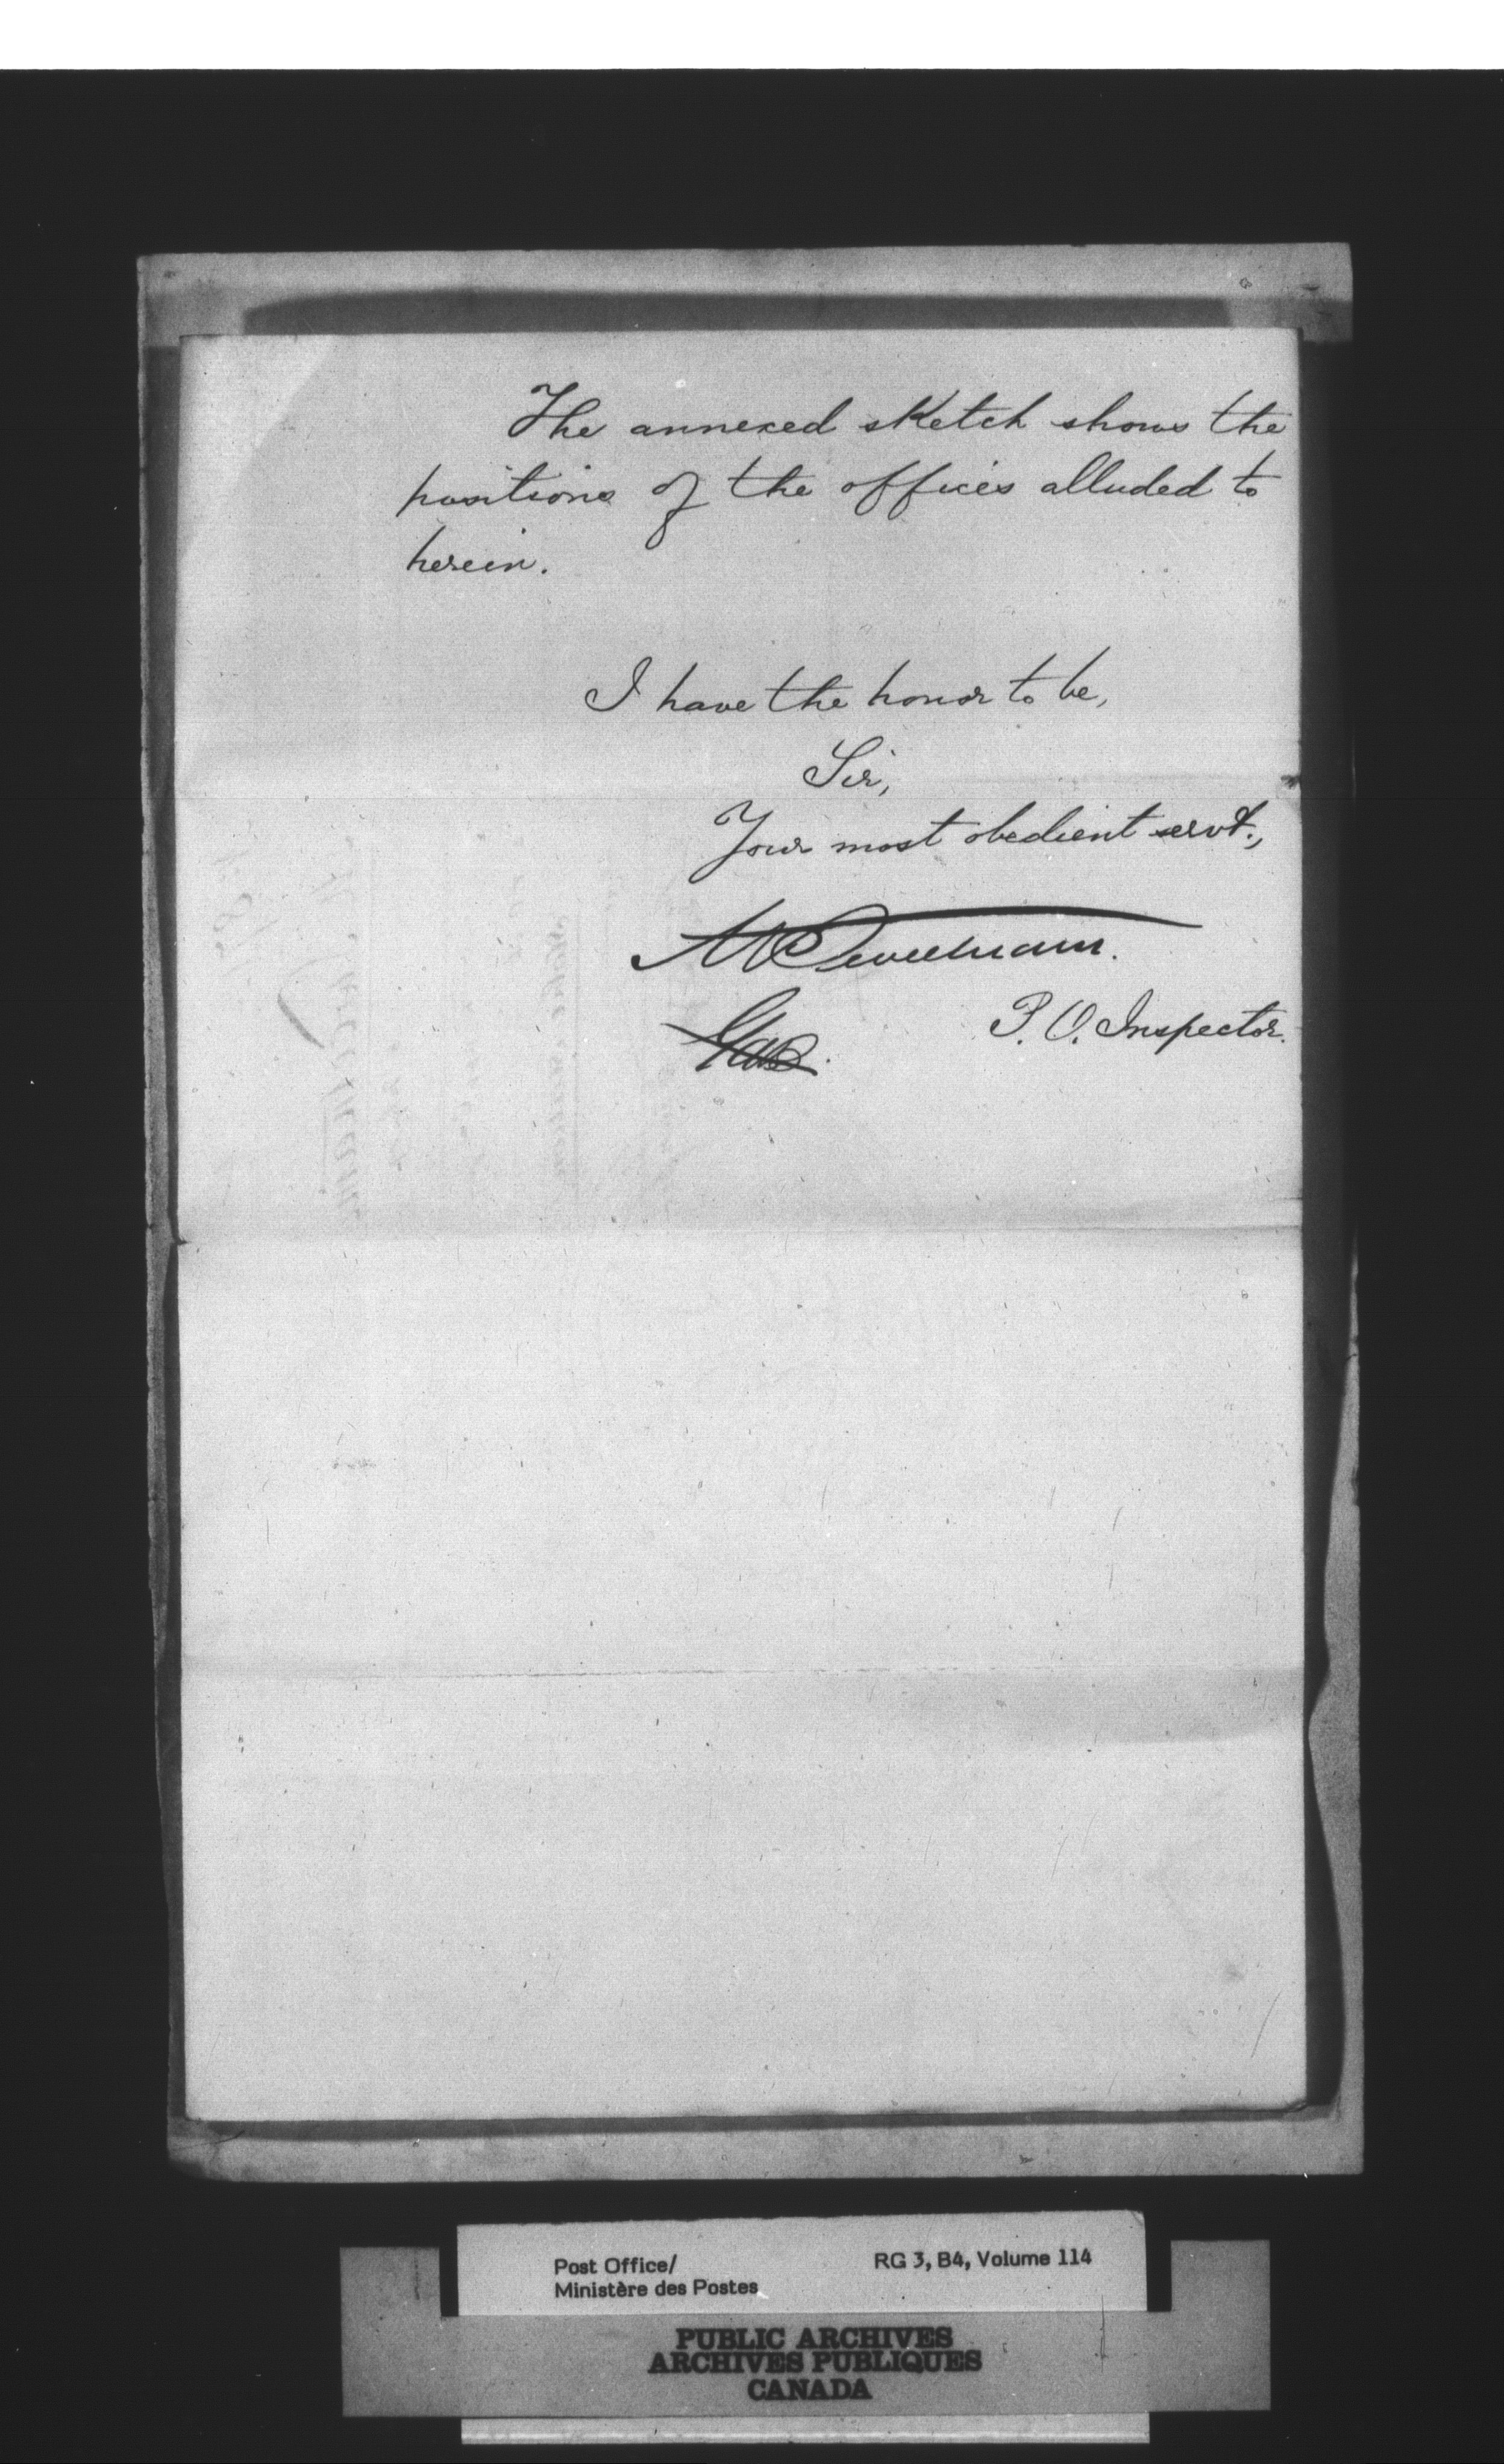 The annexed sketch shows the
positions of the offices alluded to
herein.
I have the honor to be,
Sir,
Your most obedient servt.,
P. O. Inspector.
Post Office/
Ministère des Postes
RG 3, B4, Volume 114
PUBLIC ARCHIVES
ARCHIVES PUBLIQUES
CANADA